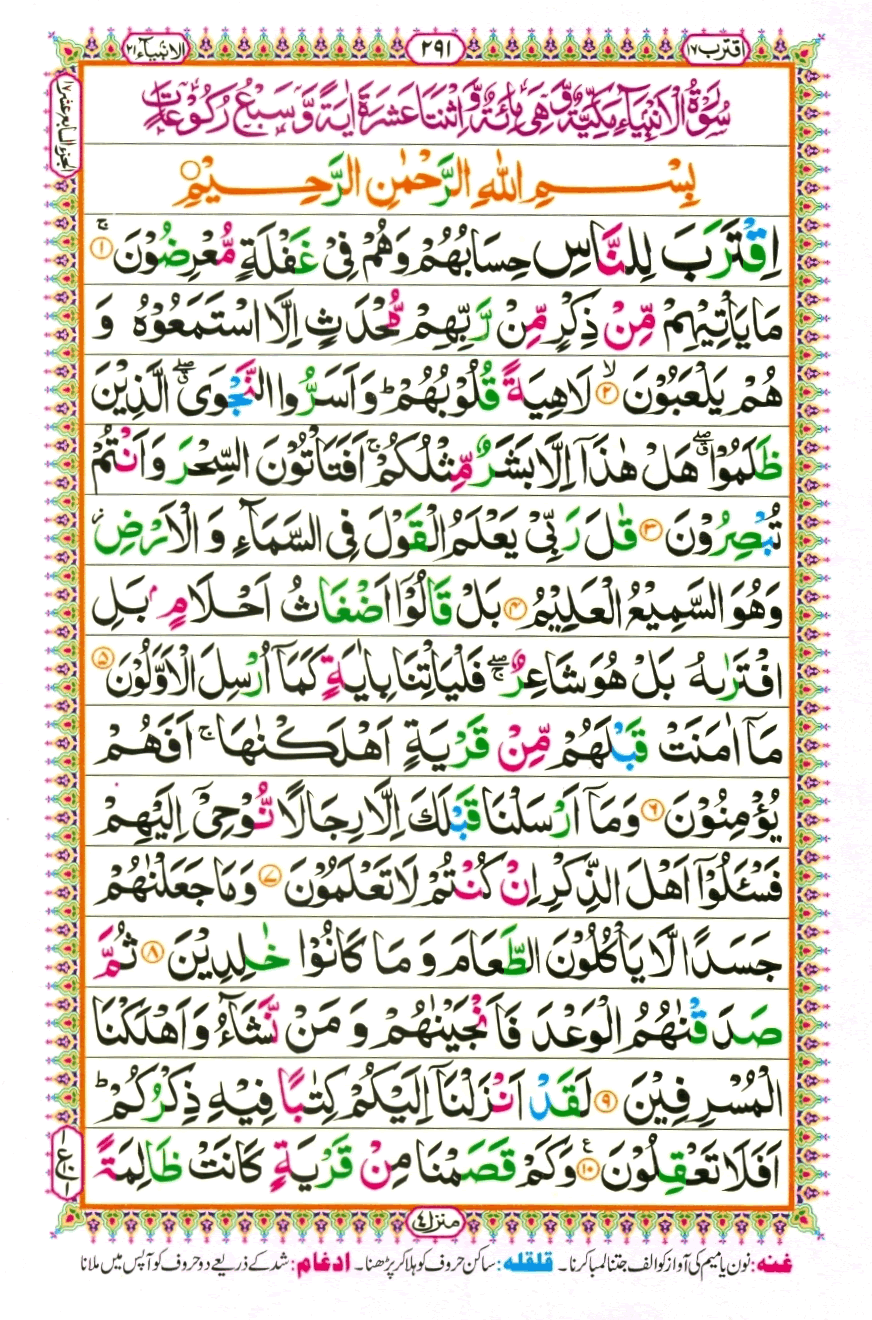 اقترب ١٧
٢٩١
الانبیآء ٢١
الجزء السابع عشر ١٧
سُوْرَةُ الْاَنْۢبِیَآءِ مَكِّیَّةٌ وَّ هِیَ مِائَةٌ وَّ اثْنَتَا عَشَرَةَ اٰیَةً وَّ سَبْعُ رُكُوْعَاتٍ
بِسْمِ اللّٰهِ الرَّحْمٰنِ الرَّحِیْمِ
اِقْتَرَبَ لِلنَّاسِ حِسَابُهُمْ وَهُمْ فِیْ غَفْلَةٍ مُّعْرِضُوْنَ ۚ ١
مَا یَاْتِیْهِمْ مِّنْ ذِكْرٍ مِّنْ رَّبِّهِمْ مُّحْدَثٍ اِلَّا اسْتَمَعُوْهُ وَ
هُمْ یَلْعَبُوْنَ ۙ ٢ لَاهِیَةً قُلُوْبُهُمْ ؕ وَاَسَرُّوا النَّجْوَی ۖۗ الَّذِیْنَ
ظَلَمُوْا ۖۗ هَلْ هٰذَاۤ اِلَّا بَشَرٌ مِّثْلُكُمْ ۚ اَفَتَاْتُوْنَ السِّحْرَ وَاَنْتُمْ
تُبْصِرُوْنَ ٣ قٰلَ رَبِّیْ یَعْلَمُ الْقَوْلَ فِی السَّمَآءِ وَ الْاَرْضِ ؗ
وَهُوَ السَّمِیْعُ الْعَلِیْمُ ٤ بَلْ قَالُوْۤا اَضْغَاثُ اَحْلَامٍۭ بَلِ
افْتَرٰىهُ بَلْ هُوَ شَاعِرٌ ۖۚ فَلْیَاْتِنَا بِاٰیَةٍ كَمَاۤ اُرْسِلَ الْاَوَّلُوْنَ ٥
مَاۤ اٰمَنَتْ قَبْلَهُمْ مِّنْ قَرْیَةٍ اَهْلَكْنٰهَا ۚ اَفَهُمْ
یُؤْمِنُوْنَ ٦ وَمَاۤ اَرْسَلْنَا قَبْلَكَ اِلَّا رِجَالًا نُّوْحِیْۤ اِلَیْهِمْ
فَسْـَٔلُوْۤا اَهْلَ الذِّكْرِ اِنْ كُنْتُمْ لَا تَعْلَمُوْنَ ٧ وَمَا جَعَلْنٰهُمْ
جَسَدًا لَّا یَاْكُلُوْنَ الطَّعَامَ وَ مَا كَانُوْا خٰلِدِیْنَ ٨ ثُمَّ
صَدَقْنٰهُمُ الْوَعْدَ فَاَنْجَیْنٰهُمْ وَ مَنْ نَّشَآءُ وَاَهْلَكْنَا
الْمُسْرِفِیْنَ ٩ لَقَدْ اَنْزَلْنَاۤ اِلَیْكُمْ كِتٰبًا فِیْهِ ذِكْرُكُمْ ؕ
اَفَلَا تَعْقِلُوْنَ ١٠ ۧ وَكَمْ قَصَمْنَا مِنْ قَرْیَةٍ كَانَتْ ظَالِمَةً
منزل ٤
غنہ: نون یا میم کی آواز کو الف جتنا لمبا کرنا۔ قلقلہ: ساکن حروف کو ہلا کر پڑھنا۔ ادغام: شد کے ذریعے دو حروف کو آپس میں ملانا